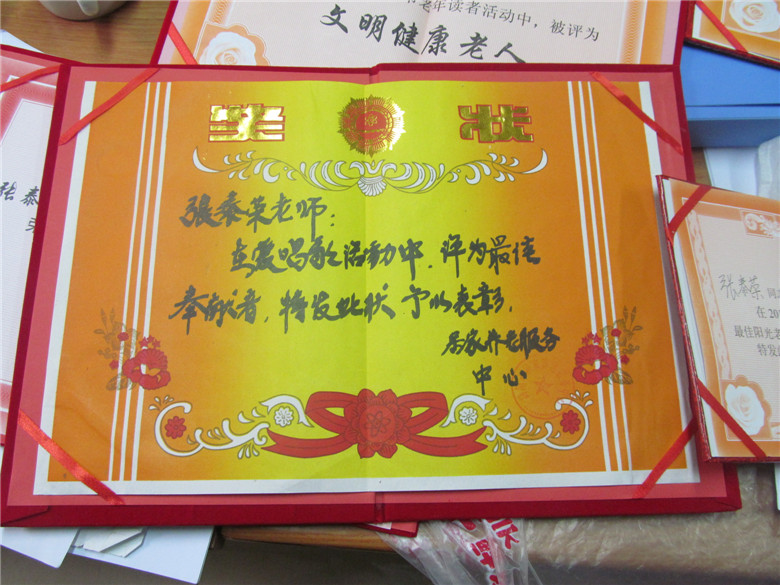 年读者活动中，被评为
文明健康老人
奖状
張泰荣老师：
在爱唱歌活动中，评为最佳
奉献者，特发此状，予以表彰。
居家养老服务
中心
张泰
张泰荣
在20
最佳阳光老
特发